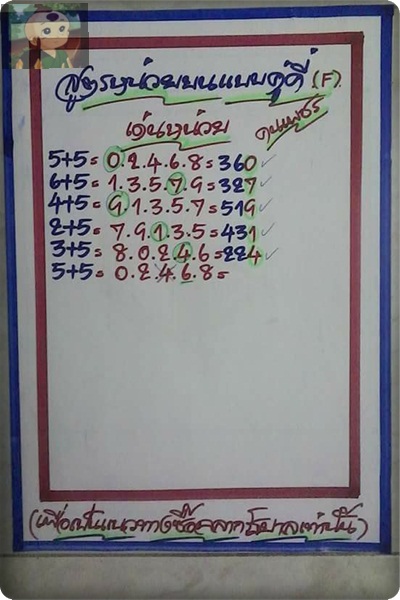 สูตรหน่วยบนแบบคู่คี่ (F)
เด่นหน่วย คนเพชร
5+5= 0.2.4.6.8=360✓
6+5= 1.3.5.7.9=327✓
4+5= 9.1.3.5.7=519✓
2+5= 7.9.1.3.5=431✓
3+5= 8.0.2.4.6=224✓
5+5= 0.2.4.6.8=
(เพื่อเป็นแนวทางซื้อสลากรัฐบาลเท่านั้น)